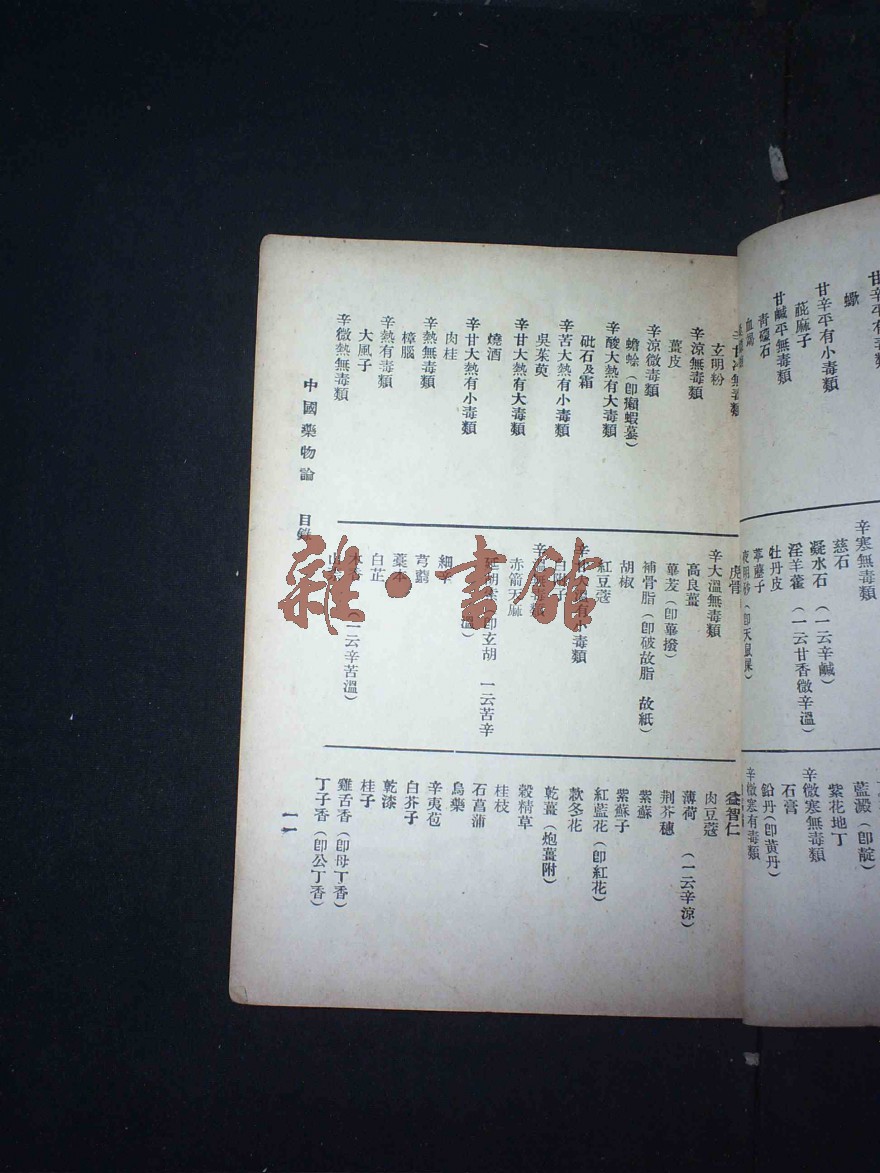 甘辛平有毒類
蠍
甘辛平有小毒類
萞麻子
甘鹹平無毒類
青礞石
血竭
辛寒無毒類
慈石
凝水石（一云辛鹹）
淫羊藿（一云甘香微辛溫）
牡丹皮
葶藶子
夜明砂（卽天鼠屎）
藍澱（卽靛）
紫花地丁
辛微寒無毒類
石膏
鉛丹（卽黃丹）
辛微寒有毒類
玄明粉
辛涼無毒類
薑皮
辛涼微毒類
蟾蜍（卽癩蝦蟇）
辛酸大熱有大毒類
砒石及霜
辛苦大熱有小毒類
吳茱萸
辛甘大熱有大毒類
燒酒
辛甘大熱有小毒類
肉桂
辛熱無毒類
樟腦
辛熱有毒類
大風子
辛微熱無毒類
虎骨
辛大溫無毒類
高良薑
蓽茇（卽蓽撥）
補骨脂（卽破故脂　故紙）
胡椒
紅豆蔻
赤箭天麻
細辛
芎藭
藁本
白芷
木香（一云辛苦溫）
益智仁
肉豆蔻
薄荷（一云辛涼）
荆芥穗
紫蘇
紫蘇子
紅藍花（卽紅花）
款冬花
乾薑（炮薑附）
穀精草
桂枝
石菖蒲
烏藥
辛夷苞
白芥子
乾漆
桂子
雞舌香（卽母丁香）
丁子香（卽公丁香）
中國藥物論　目錄
一一
雜·書館